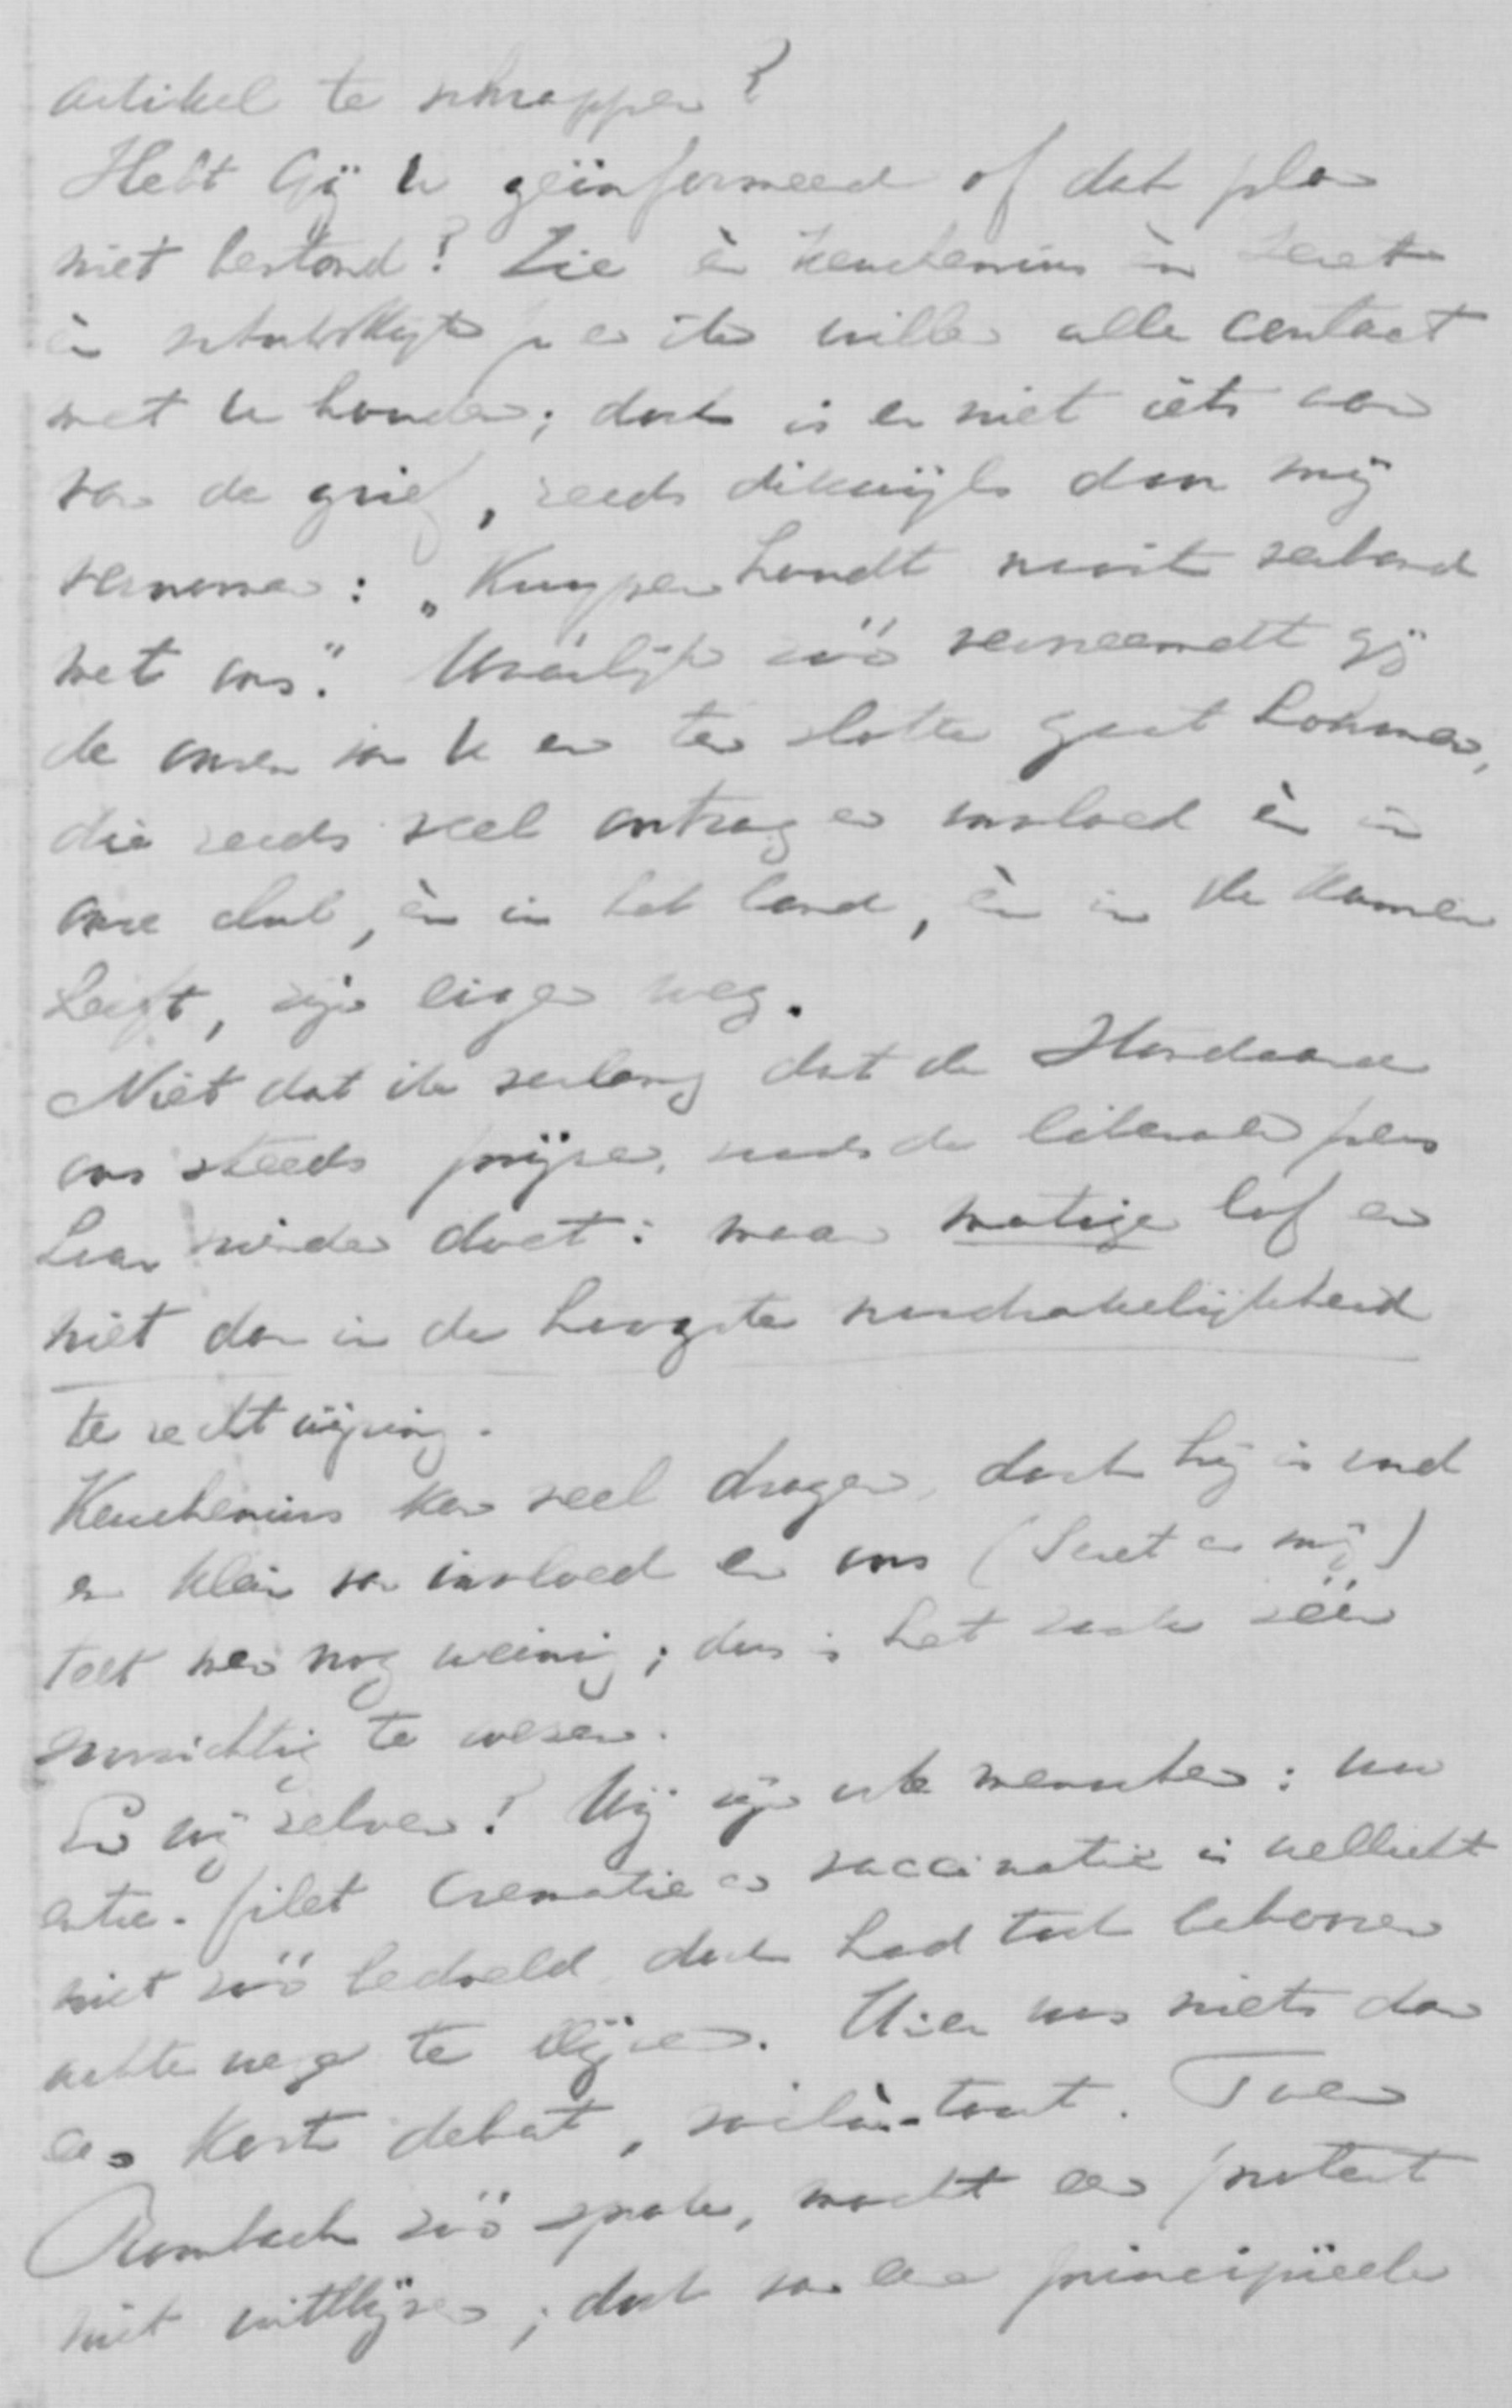 artikel te schrappen?
Hebt Gij U geïnformeerd of dat plan
niet bestond? Zie èn Keuchenius èn Seret
èn en ik willen alle contact
met U houden; doch is er niet iets aan
van de grief, reeds dikwijls door mij
vernomen: „Kuyper houdt nooit verband
met ons." Waarlijk zóó vervreemdt gij
de onzen van U en ten slotte gaat Lohman,
die reeds veel ontzag en invloed èn in
onze club, èn in het land, èn in de Kamer
heeft, zijn eigen weg.
Niet dat ik verlang dat de Standaard
ons steeds prijze, zooals de liberale pers
haar vrienden doet: maar matige lof en
niet dan in de hoogste noodzakelijkheid
terechtwijzing.
Keuchenius kan veel dragen, doch hij is oud
en klein van invloed en ons (Seret en mij)
telt men nog weinig; dus is het zaak zéér
voorzichtig te wezen.
En wij zelven! Wij zijn ook menschen: uw
entre-filet Crematie en vaccinatie is wellicht
niet zóó bedoeld, doch had toch behooren
achterwege te blijven. Hier was niets dan
een kort debat, voilà-tout. Toen
Rombach zóó sprak, mocht een protest
niet uitblijven; doch van een principieele